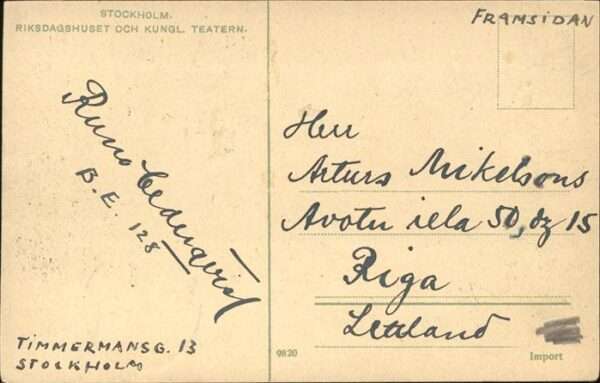 STOCKHOLM.
RIKSDAGSHUSET OCH KUNGL. TEATERN.
FRAMSIDAN
Runo Cederqvist
B.E. 128
TIMMERMANSG. 13
STOCKHOLM
Herr
Arturs Mikelsons
Avotu iela 50, dz 15
Riga
Lettland
9820
Import